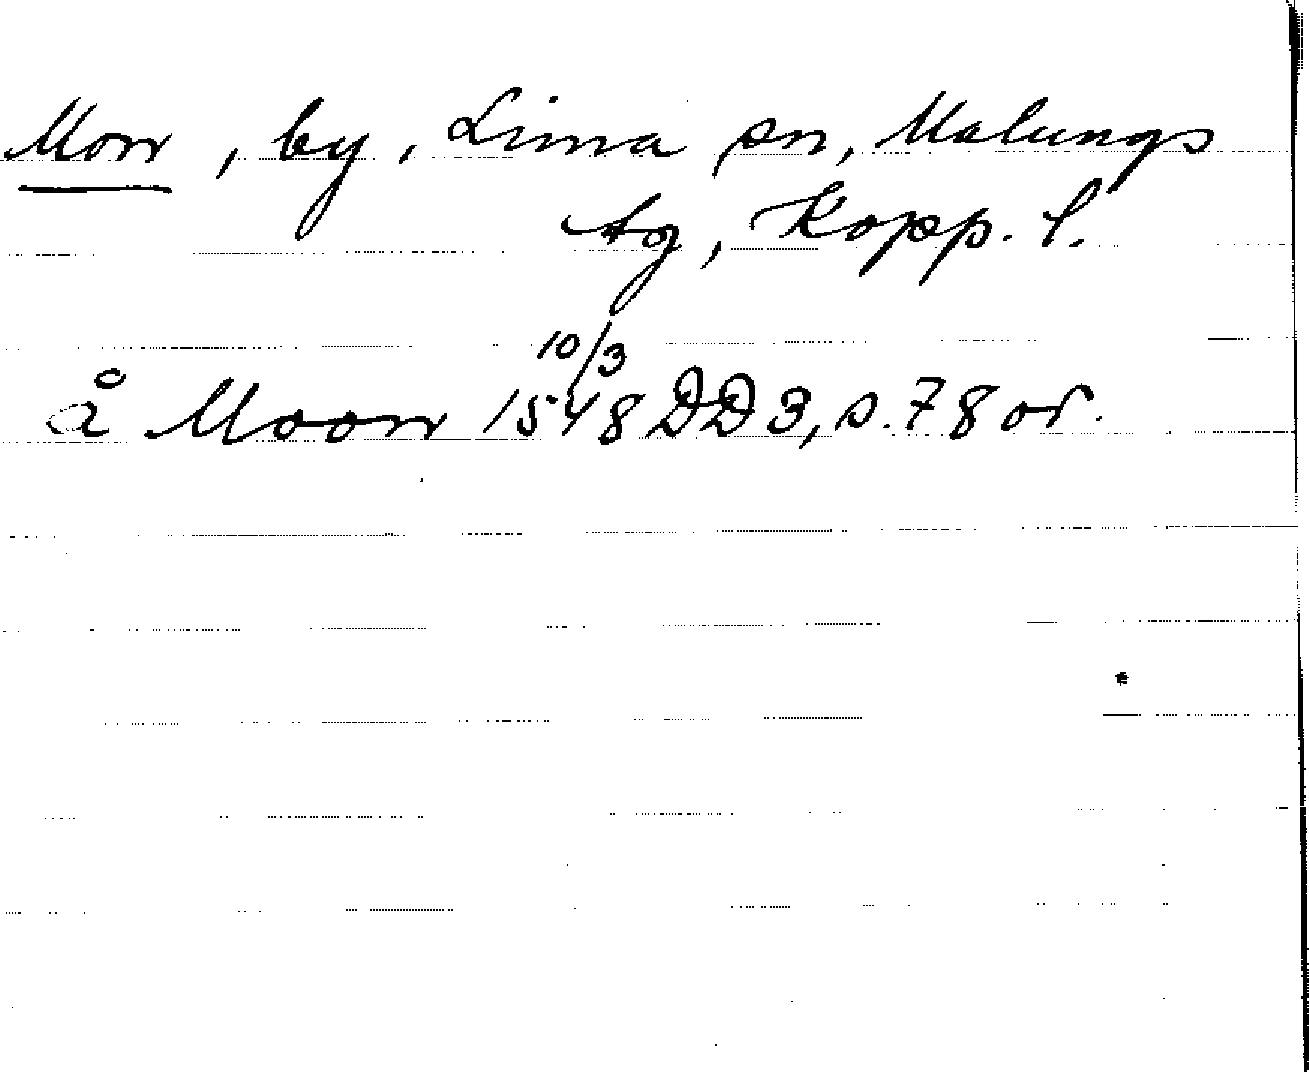 Morr, by, Lima sn, Malungs
tg, Kopp. l.
å Moorr 10/3 1548 DD 3, s. 78 or.